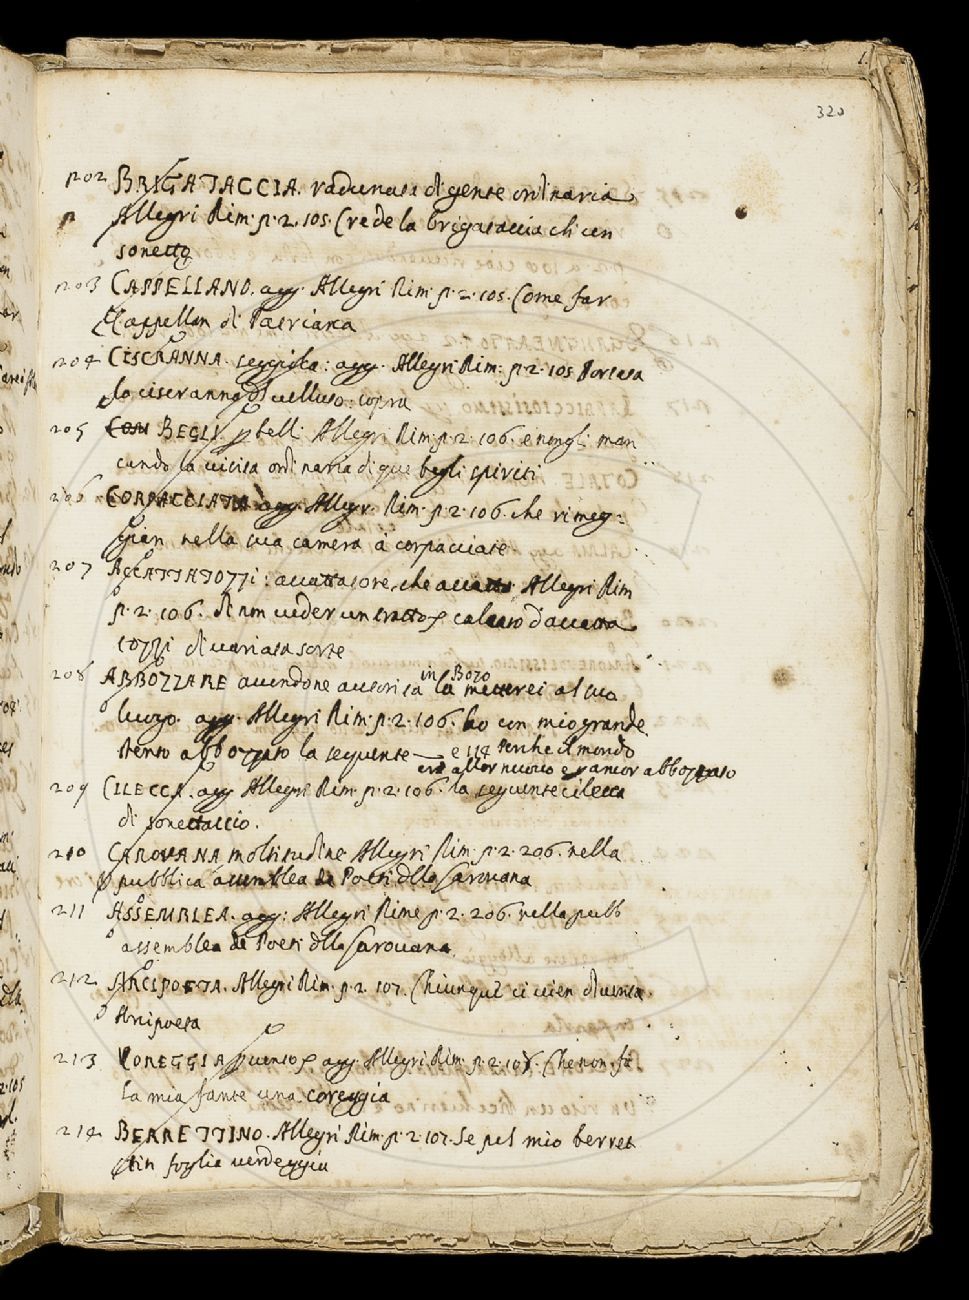 320
202 BRIGATACCIA. radunata di gente ordinaria
Allegri Rim. p. 2. 105. Crede la brigataccia ch'un
sonetto
203 CAPPELLANO. agg. Allegri Rim. p. 2. 105. Come far
Cappellan di
204 CISCRANNA. seggiola: agg. Allegri Rim: p. 2. 105 Portata
la ciscranna di velluto:
205 BEGLI. p belli Allegri Rim: p. 2. 106. e non gli man
cando la vivita ordinaria di que begli spiriti
206 CORPACCIATA agg. Allegr. Rim. p. 2. 106. che rimeg:
gian nella sua camera à corpacciate
207 ACCATTATOZZI: accattatore, che accatta Allegri Rim
p. 2. 106. di non veder un tratto p d'accatta
tozzi di variata sorte
208 ABBOZZARE avendone autorita in Bozo la metterei al suo
luogo. agg. Allegri Rim. p. 2. 106. ho con mio grande
stento abbozzato la seguente — e 114 Perche il mondo
era allor nuovo e rancor abbozzato
209 CILECCA. agg Allegri Rim. p. 2. 106. la seguente cilecca
di sonettaccio.
210 CAROVANA moltitudine Allegri Rim. p. 2. 206. nella
pubblica assemblea de Poeti dlla Carovana
211 ASSEMBLEA. agg: Allegri Rime p. 2. 206. nella pubb
assemblea de Poeti dlla Carovana
212 ARCIPOETA. Allegri Rim. p. 2. 107. Chiunque ci vien diventa
Arcipoeta
213 COREGGIA agg. Allegri Rim. p. 2. 107. Che non fè
la mia fante una coreggia
214 BERRETTINO. Allegri Rim. p. 2. 107. Se pel mio berret
tin foglia verdeggia